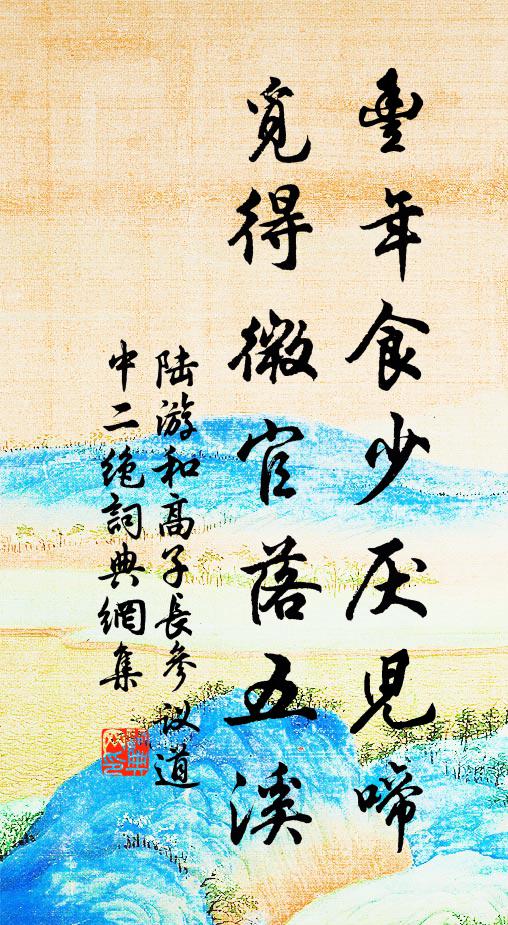 豐年食少厌児啼
覓得微官落五溪
陆游和高子长參议道
中二絶詞典網集